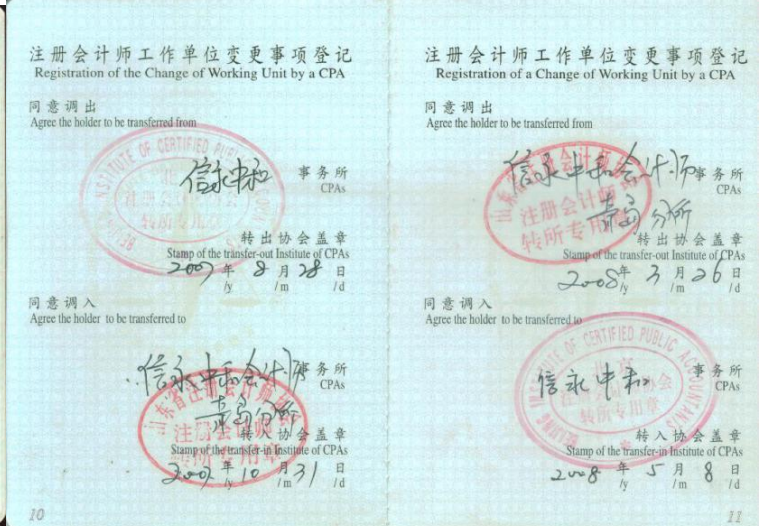 注册会计师工作单位变更事项登记
Registration of the Change of Working Unit by a CPA
同意调出
Agree the holder to be transferred from
信永中和 事务所
CPAs
转出协会盖章
Stamp of the transfer-out Institute of CPAs
2007年 8月 28日
/y /m /d
同意调入
Agree the holder to be transferred to
信永中和会计师事务所
CPAs
青岛分所
转入协会盖章
Stamp of the transfer-in Institute of CPAs
2007年 10月 31日
/y /m /d
10
注册会计师工作单位变更事项登记
Registration of a Change of Working Unit by a CPA
同意调出
Agree the holder to be transferred from
信永中和会计师事务所
CPAs
青岛分所
转出协会盖章
Stamp of the transfer-out Institute of CPAs
2008年 3月 26日
/y /m /d
同意调入
Agree the holder to be transferred to
信永中和 事务所
CPAs
转入协会盖章
Stamp of the transfer-in Institute of CPAs
2008年 5月 8日
/y /m /d
11
山东省注册会计师协会
注册会计师
转所专用章
INSTITUTE OF CERTIFIED PUBLIC ACCOUNTANTS
转所专用章